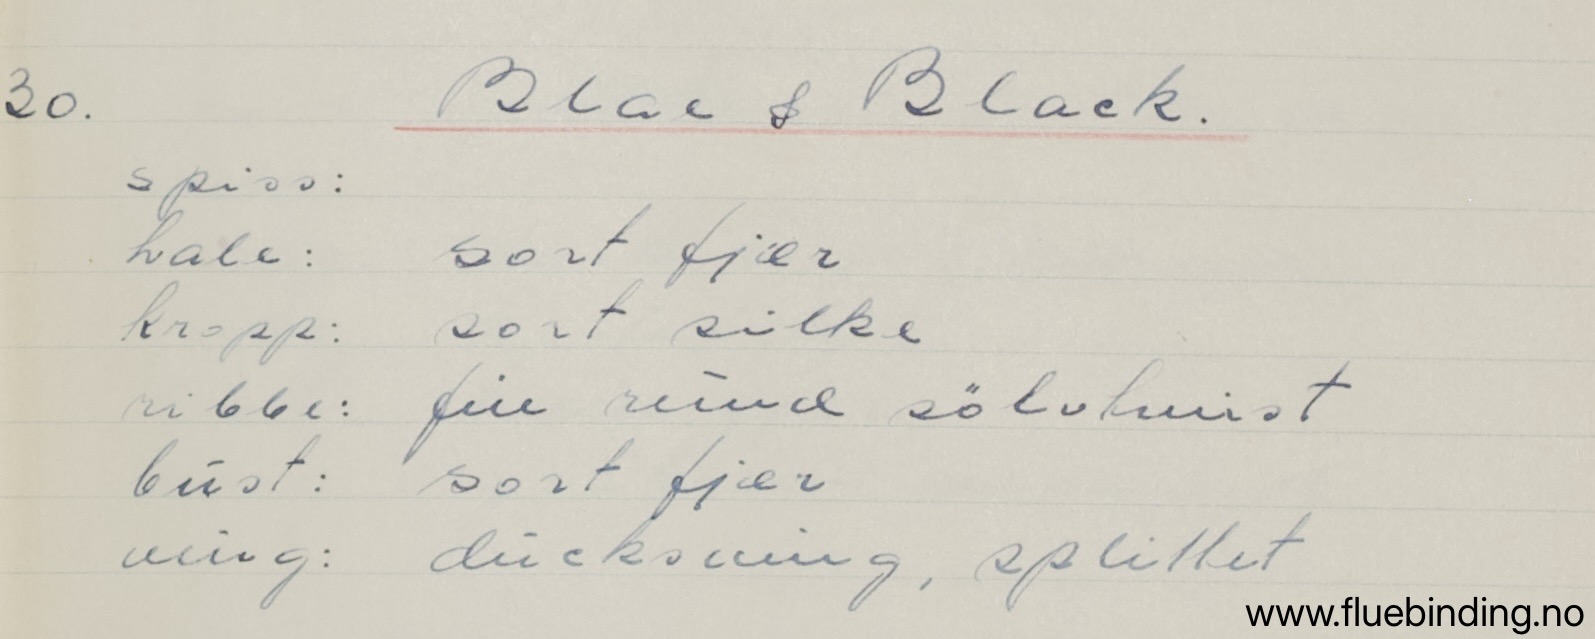 30. Blae & Black.
spiss:
hale: sort fjær
kropp: sort silke
ribbe: fin rund sölvtvist
bust: sort fjær
ving: ducksving, splittet
www.fluebinding.no